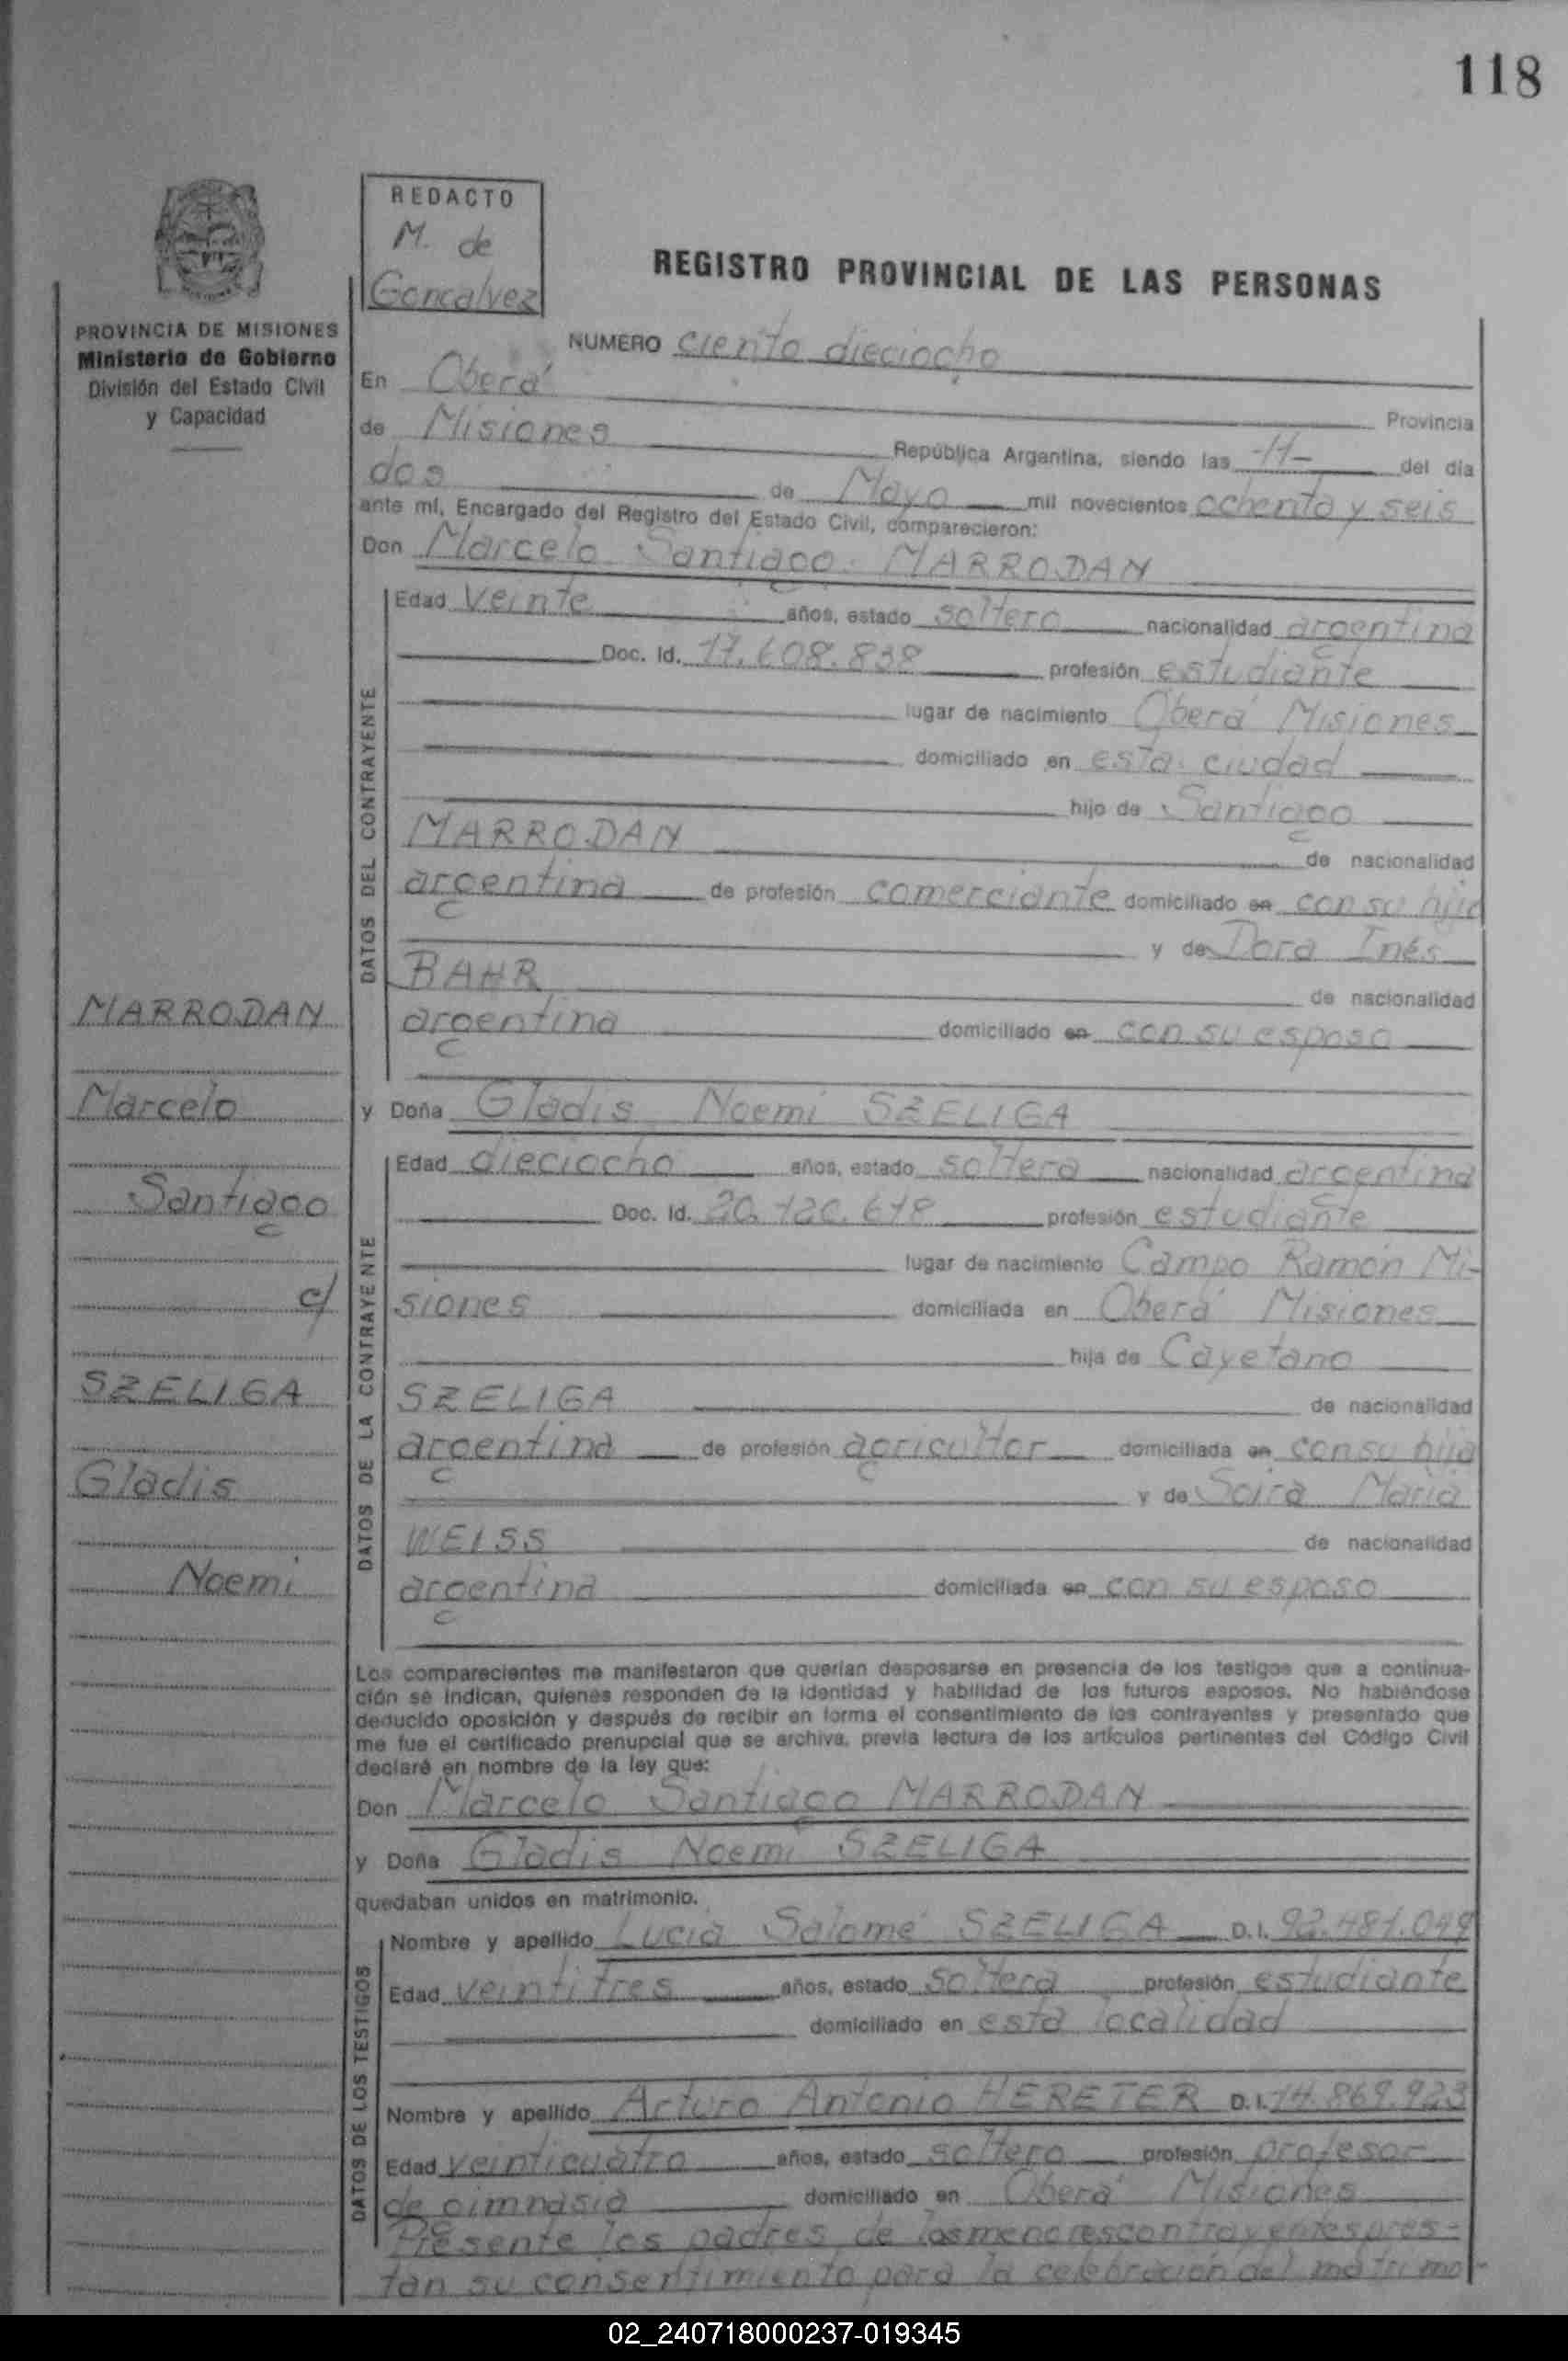 118
REDACTO
M. de
Goncalvez
PROVINCIA DE MISIONES
Ministerio de Gobierno
División del Estado Civil
y Capacidad
REGISTRO PROVINCIAL DE LAS PERSONAS
NUMERO ciento dieciocho
En Oberá Provincia
de Misiones República Argentina, siendo las -11- del día
dos de Mayo mil novecientos ochenta y seis
ante mí, Encargado del Registro del Estado Civil, comparecieron:
Don Marcelo Santiago MARRODAN
DATOS DEL CONTRAYENTE
Edad veinte años, estado soltero nacionalidad argentina
Doc. Id. 17.608.838 profesión estudiante
lugar de nacimiento Oberá Misiones
domiciliado en esta ciudad
hijo de Santiago
MARRODAN de nacionalidad
argentina de profesión comerciante domiciliado en con su hijo
y de Dora Inés
BAHR de nacionalidad
argentina domiciliado en con su esposo
y Doña Gladis Noemi SZELIGA
DATOS DE LA CONTRAYENTE
Edad dieciocho años, estado soltera nacionalidad argentina
Doc. Id. profesión estudiante
lugar de nacimiento Campo Ramón Mi-
siones domiciliada en Oberá Misiones
hija de Cayetano
SZELIGA de nacionalidad
argentina de profesión agricultor domiciliada en con su hija
y de Soira Maria
WEISS de nacionalidad
argentina domiciliada en con su esposo
MARRODAN
Marcelo
Santiago
c/
SZELIGA
Gladis
Noemi
Los comparecientes me manifestaron que querían desposarse en presencia de los testigos que a continua-
ción se indican, quienes responden de la identidad y habilidad de los futuros esposos. No habiéndose
deducido oposición y después de recibir en forma el consentimiento de los contrayentes y presentado que
me fue el certificado prenupcial que se archiva, previa lectura de los artículos pertinentes del Código Civil
declaré en nombre de la ley que:
Don Marcelo Santiago MARRODAN
y Doña Gladis Noemi SZELIGA
quedaban unidos en matrimonio.
DATOS DE LOS TESTIGOS
Nombre y apellido Lucia Salomé SZELIGA D.I. 92.481.049
Edad veintitres años, estado soltera profesión estudiante
domiciliado en esta localidad
Nombre y apellido Arturo Antonio HERETER D.I. 14.869.923
Edad veinticuatro años, estado soltero profesión profesor
de gimnasia domiciliado en Oberá Misiones
Presente los padres de los menores contrayentes pres-
tan su consentimiento para la celebración del matrimo-
02_240718000237-019345